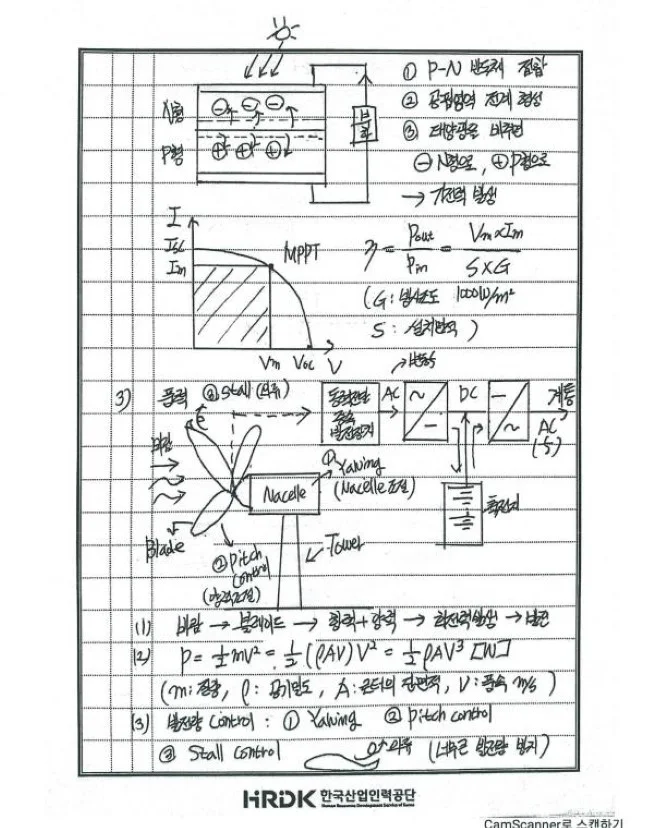 ① P-N 반도체 접합
② 공핍영역 전계 형성
③ 태양광을 비추면
⊖ N형으로, ⊕ P형으로
→ 기전력 발생
N형
P형
부하
I
Isc
Im
MPPT
Vm Voc V
η = Pout / Pin = Vm×Im / S×G
(G: 일사강도 1000W/m²
S: 설치면적)
3) 풍력 ③ Stall (와류)
동력전달
증속
발전장치
AC
DC
계통
AC
(f)
변동속
바람
Nacelle
① Yawing
(Nacelle 조절)
축전지
Blade
② Pitch
Control
(양력조절)
Tower
(1) 바람 → 블레이드 → 항력+양력 → 회전력발생 → 발전
(2) P = ½mV² = ½(ρAV)V² = ½ρAV³ [W]
(m: 질량, ρ: 공기밀도, A: 로터의 단면적, V: 풍속 m/s)
(3) 발전량 Control : ① Yawing ② Pitch control
③ Stall Control 와류 (너무큰 발전량 방지)
HRDK 한국산업인력공단
Human Resources Development Service of Korea
CamScanner로 스캔하기